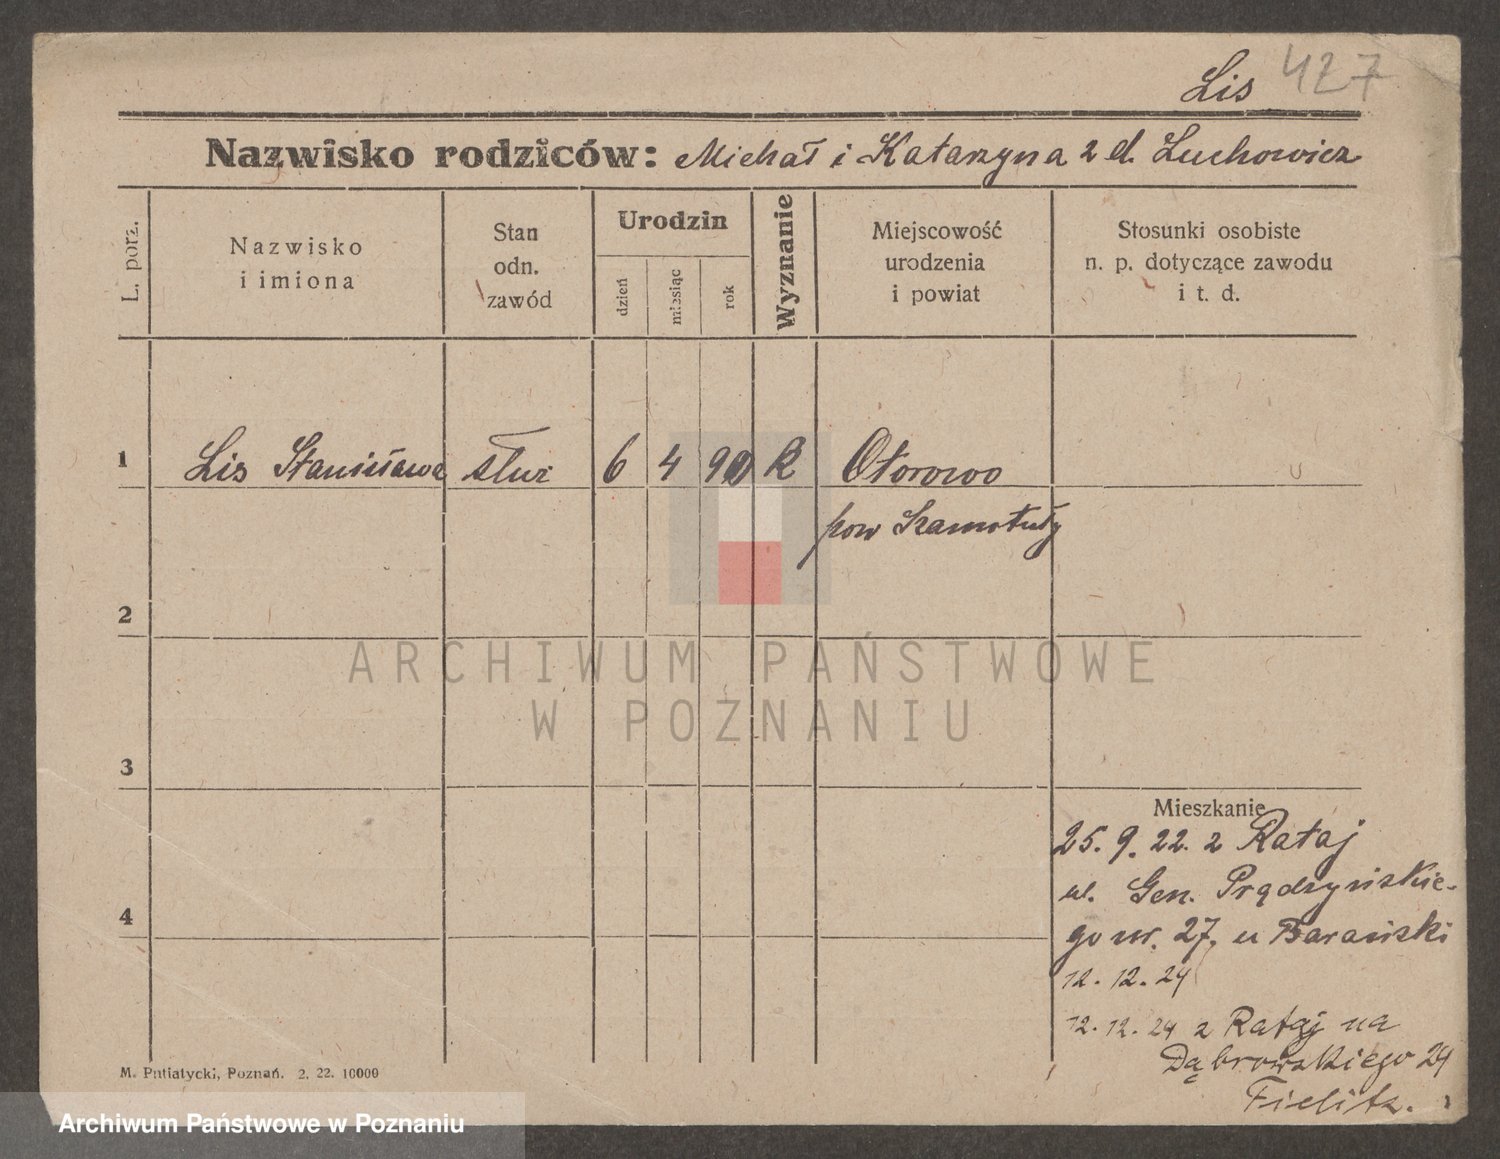 Lis 427
Nazwisko rodziców: Michał i Katarzyna z d. Luchowicz
L. porz.
Nazwisko
i imiona
Stan
odn.
zawód
Urodzin
dzień
miesiąc
rok
Wyznanie
Miejscowość
urodzenia
i powiat
Stosunki osobiste
n. p. dotyczące zawodu
i t. d.
1 Lis Stanisława służ 6 4 90 R Otorowo
pow Szamotuły
2
ARCHIWUM PAŃSTWOWE
W POZNANIU
3
Mieszkanie
25. 9. 22. z Rataj
ul. Gen. Prądzyńskie-
go nr. 27. u Barański
12. 12. 24
4
12. 12. 24 z Rataj na
Dąbrowskiego 24
Fielitz.
M. Putiatycki, Poznań. 2. 22. 10000
Archiwum Państwowe w Poznaniu